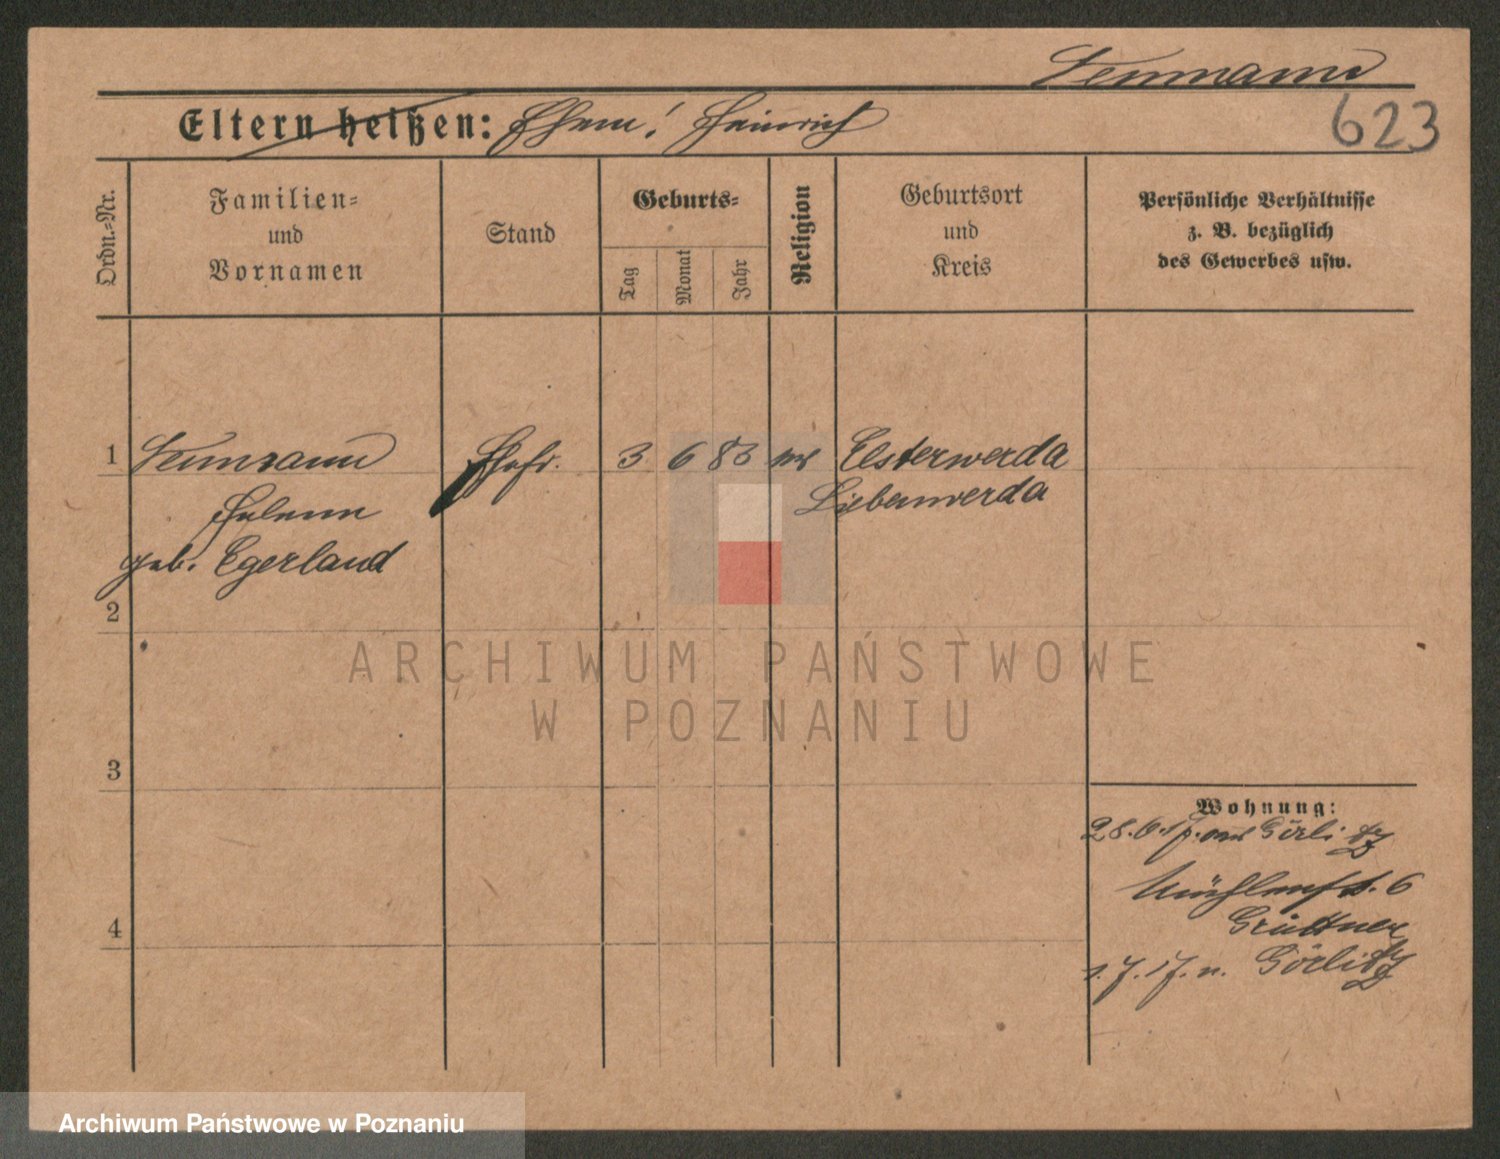 Neumann
623
Eltern heißen: Ehem: Heinrich
Ordn.-Nr.
Familien-
und
Vornamen
Stand
Geburts-
Tag
Monat
Jahr
Religion
Geburtsort
und
Kreis
Persönliche Verhältnisse
z. B. bezüglich
des Gewerbes usw.
1 Neumann Ehefr. 3 6 83 Elsterwerda
Helene Liebenwerda
geb. Egerland
2
3
4
Wohnung:
28.6.17. aus Görlitz
6
Grüttner
1.7.17. n. Görlitz
ARCHIWUM PAŃSTWOWE
W POZNANIU
Archiwum Państwowe w Poznaniu